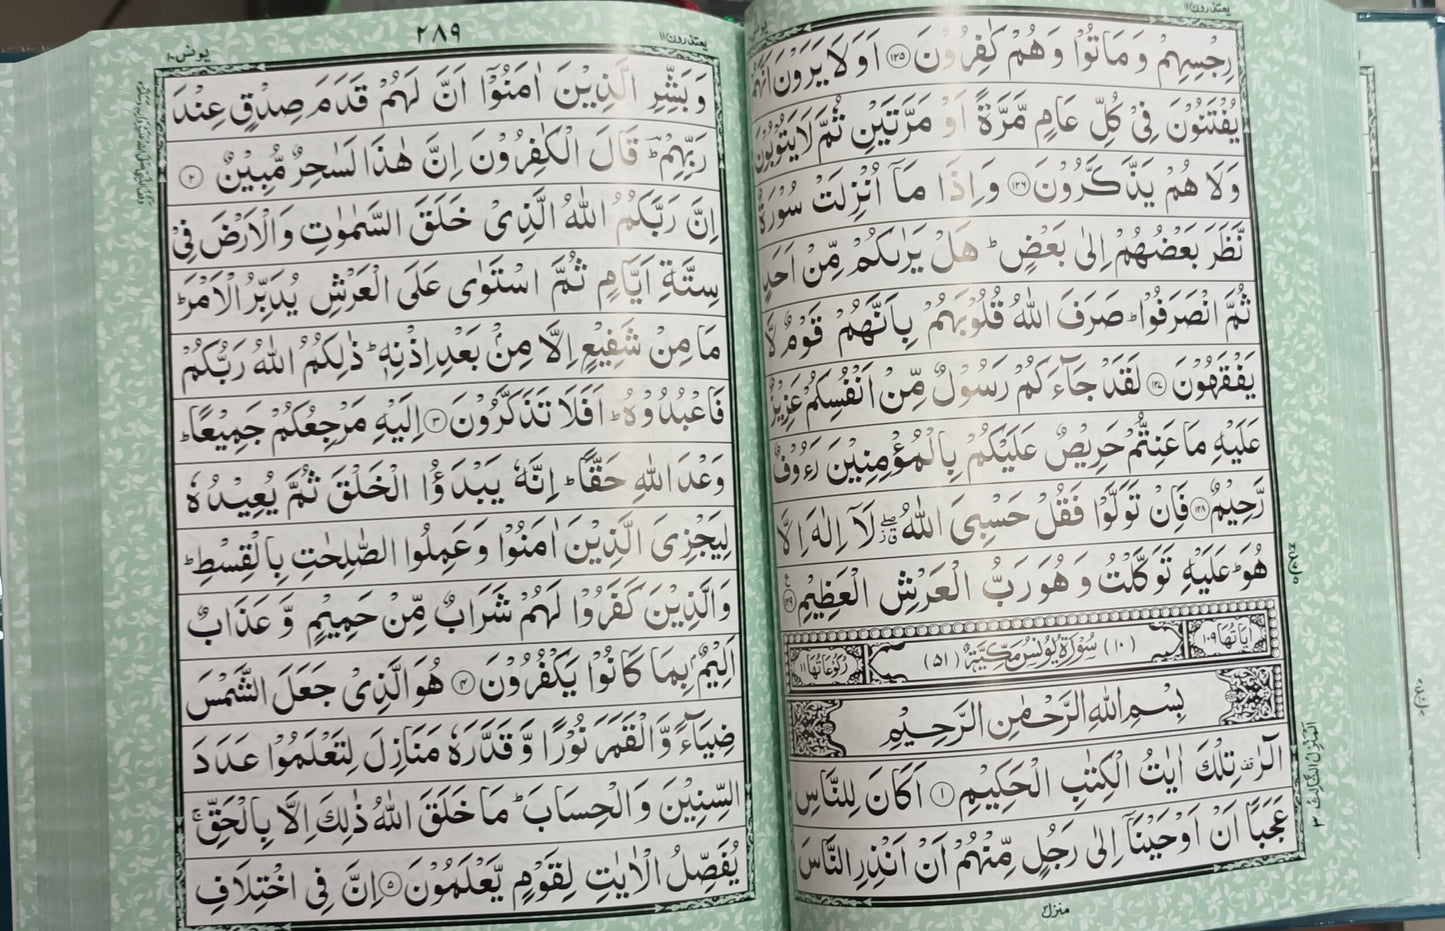 یعتذرون ۱۱
رِجْسِهِمْ وَ مَاتُوْا وَ هُمْ كٰفِرُوْنَ ۝۱۲۵ اَوَ لَا یَرَوْنَ اَنَّهُمْ
یُفْتَنُوْنَ فِیْ كُلِّ عَامٍ مَّرَّةً اَوْ مَرَّتَیْنِ ثُمَّ لَا یَتُوْبُوْنَ
وَ لَا هُمْ یَذَّكَّرُوْنَ ۝۱۲۶ وَ اِذَا مَاۤ اُنْزِلَتْ سُوْرَةٌ
نَّظَرَ بَعْضُهُمْ اِلٰی بَعْضٍ ؕ هَلْ یَرٰىكُمْ مِّنْ اَحَدٍ
ثُمَّ انْصَرَفُوْا ؕ صَرَفَ اللّٰهُ قُلُوْبَهُمْ بِاَنَّهُمْ قَوْمٌ لَّا
یَفْقَهُوْنَ ۝۱۲۷ لَقَدْ جَآءَكُمْ رَسُوْلٌ مِّنْ اَنْفُسِكُمْ عَزِیْزٌ
عَلَیْهِ مَا عَنِتُّمْ حَرِیْصٌ عَلَیْكُمْ بِالْمُؤْمِنِیْنَ رَءُوْفٌ
رَّحِیْمٌ ۝۱۲۸ فَاِنْ تَوَلَّوْا فَقُلْ حَسْبِیَ اللّٰهُ ۖؗ لَاۤ اِلٰهَ اِلَّا
هُوَ ؕ عَلَیْهِ تَوَكَّلْتُ وَ هُوَ رَبُّ الْعَرْشِ الْعَظِیْمِ ۝۱۲۹
اٰیَاتُهَا ۱۰۹ (۱۰) سُوْرَةُ یُوْنُسَ مَكِّیَّةٌ (۵۱) رُكُوْعَاتُهَا ۱۱
بِسْمِ اللّٰهِ الرَّحْمٰنِ الرَّحِیْمِ
الٓرٰ ۫ تِلْكَ اٰیٰتُ الْكِتٰبِ الْحَكِیْمِ ۝۱ اَكَانَ لِلنَّاسِ
عَجَبًا اَنْ اَوْحَیْنَاۤ اِلٰی رَجُلٍ مِّنْهُمْ اَنْ اَنْذِرِ النَّاسَ
منزل ۳
اَلْمَنْزِلُ الثَّالِثُ ۳
یعتذرون ۱۱
۲۸۹
یونس ۱۰
وَ بَشِّرِ الَّذِیْنَ اٰمَنُوْۤا اَنَّ لَهُمْ قَدَمَ صِدْقٍ عِنْدَ
رَبِّهِمْ ؕؔ قَالَ الْكٰفِرُوْنَ اِنَّ هٰذَا لَسٰحِرٌ مُّبِیْنٌ ۝۲
اِنَّ رَبَّكُمُ اللّٰهُ الَّذِیْ خَلَقَ السَّمٰوٰتِ وَ الْاَرْضَ فِیْ
سِتَّةِ اَیَّامٍ ثُمَّ اسْتَوٰی عَلَی الْعَرْشِ یُدَبِّرُ الْاَمْرَ ؕ
مَا مِنْ شَفِیْعٍ اِلَّا مِنْۢ بَعْدِ اِذْنِهٖ ؕ ذٰلِكُمُ اللّٰهُ رَبُّكُمْ
فَاعْبُدُوْهُ ؕ اَفَلَا تَذَكَّرُوْنَ ۝۳ اِلَیْهِ مَرْجِعُكُمْ جَمِیْعًا ؕ
وَعْدَ اللّٰهِ حَقًّا ؕ اِنَّهٗ یَبْدَؤُا الْخَلْقَ ثُمَّ یُعِیْدُهٗ
لِیَجْزِیَ الَّذِیْنَ اٰمَنُوْا وَ عَمِلُوا الصّٰلِحٰتِ بِالْقِسْطِ ؕ
وَ الَّذِیْنَ كَفَرُوْا لَهُمْ شَرَابٌ مِّنْ حَمِیْمٍ وَّ عَذَابٌ
اَلِیْمٌۢ بِمَا كَانُوْا یَكْفُرُوْنَ ۝۴ هُوَ الَّذِیْ جَعَلَ الشَّمْسَ
ضِیَآءً وَّ الْقَمَرَ نُوْرًا وَّ قَدَّرَهٗ مَنَازِلَ لِتَعْلَمُوْا عَدَدَ
السِّنِیْنَ وَ الْحِسَابَ ؕ مَا خَلَقَ اللّٰهُ ذٰلِكَ اِلَّا بِالْحَقِّ ۚ
یُفَصِّلُ الْاٰیٰتِ لِقَوْمٍ یَّعْلَمُوْنَ ۝۵ اِنَّ فِی اخْتِلَافِ